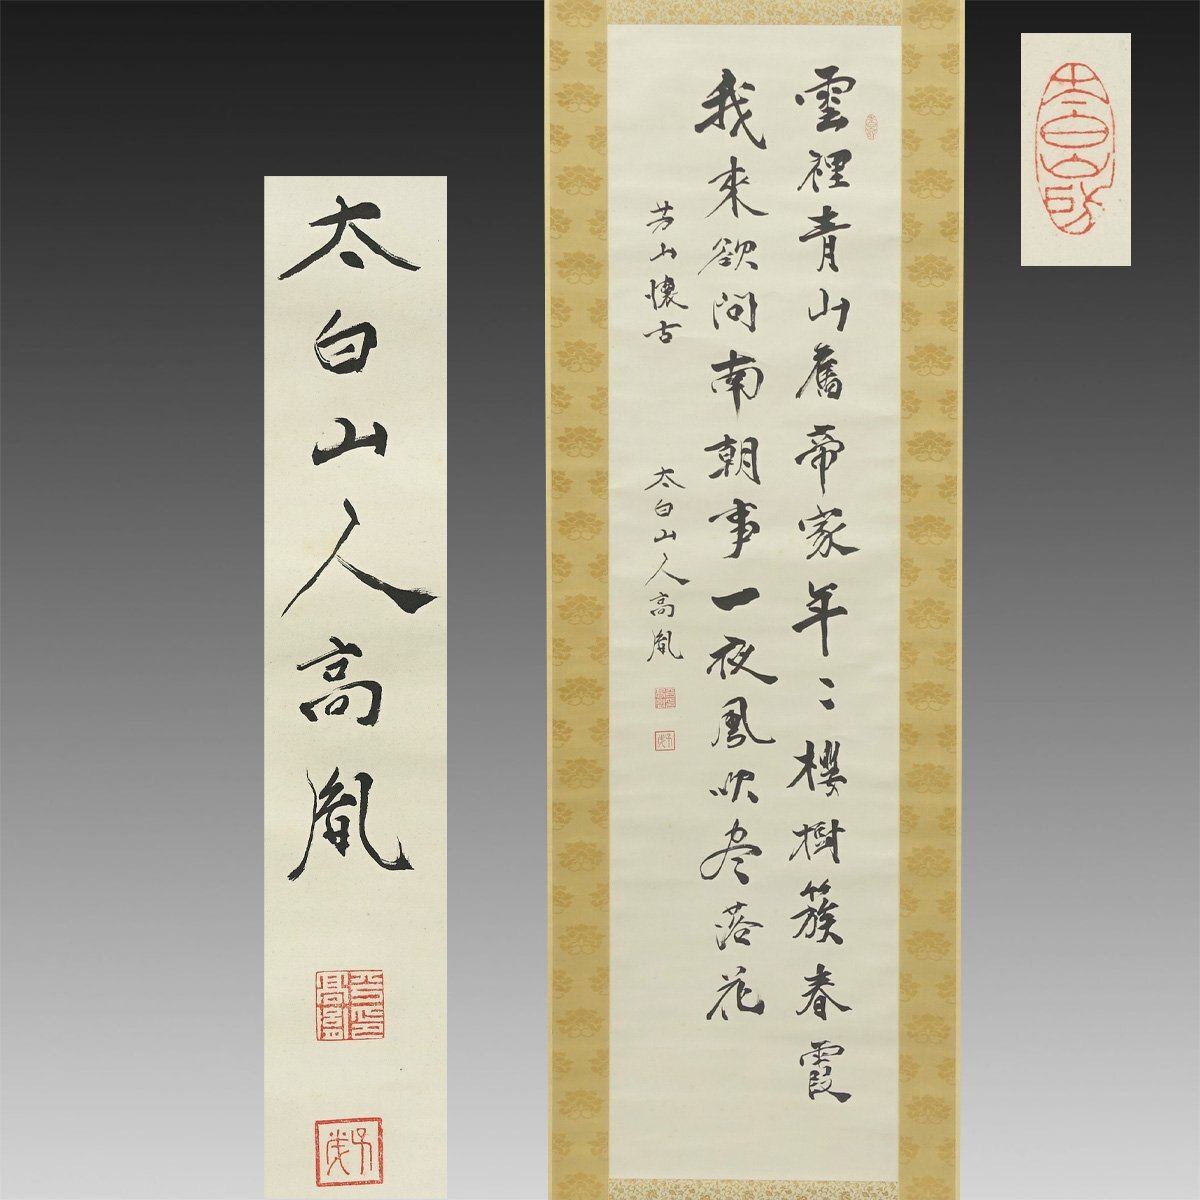 雲裡青山舊帝家年〻櫻樹簇春霞
我來欲問南朝事一夜風吹尽落花
芳山懷古
太白山人高胤
太白山人高胤